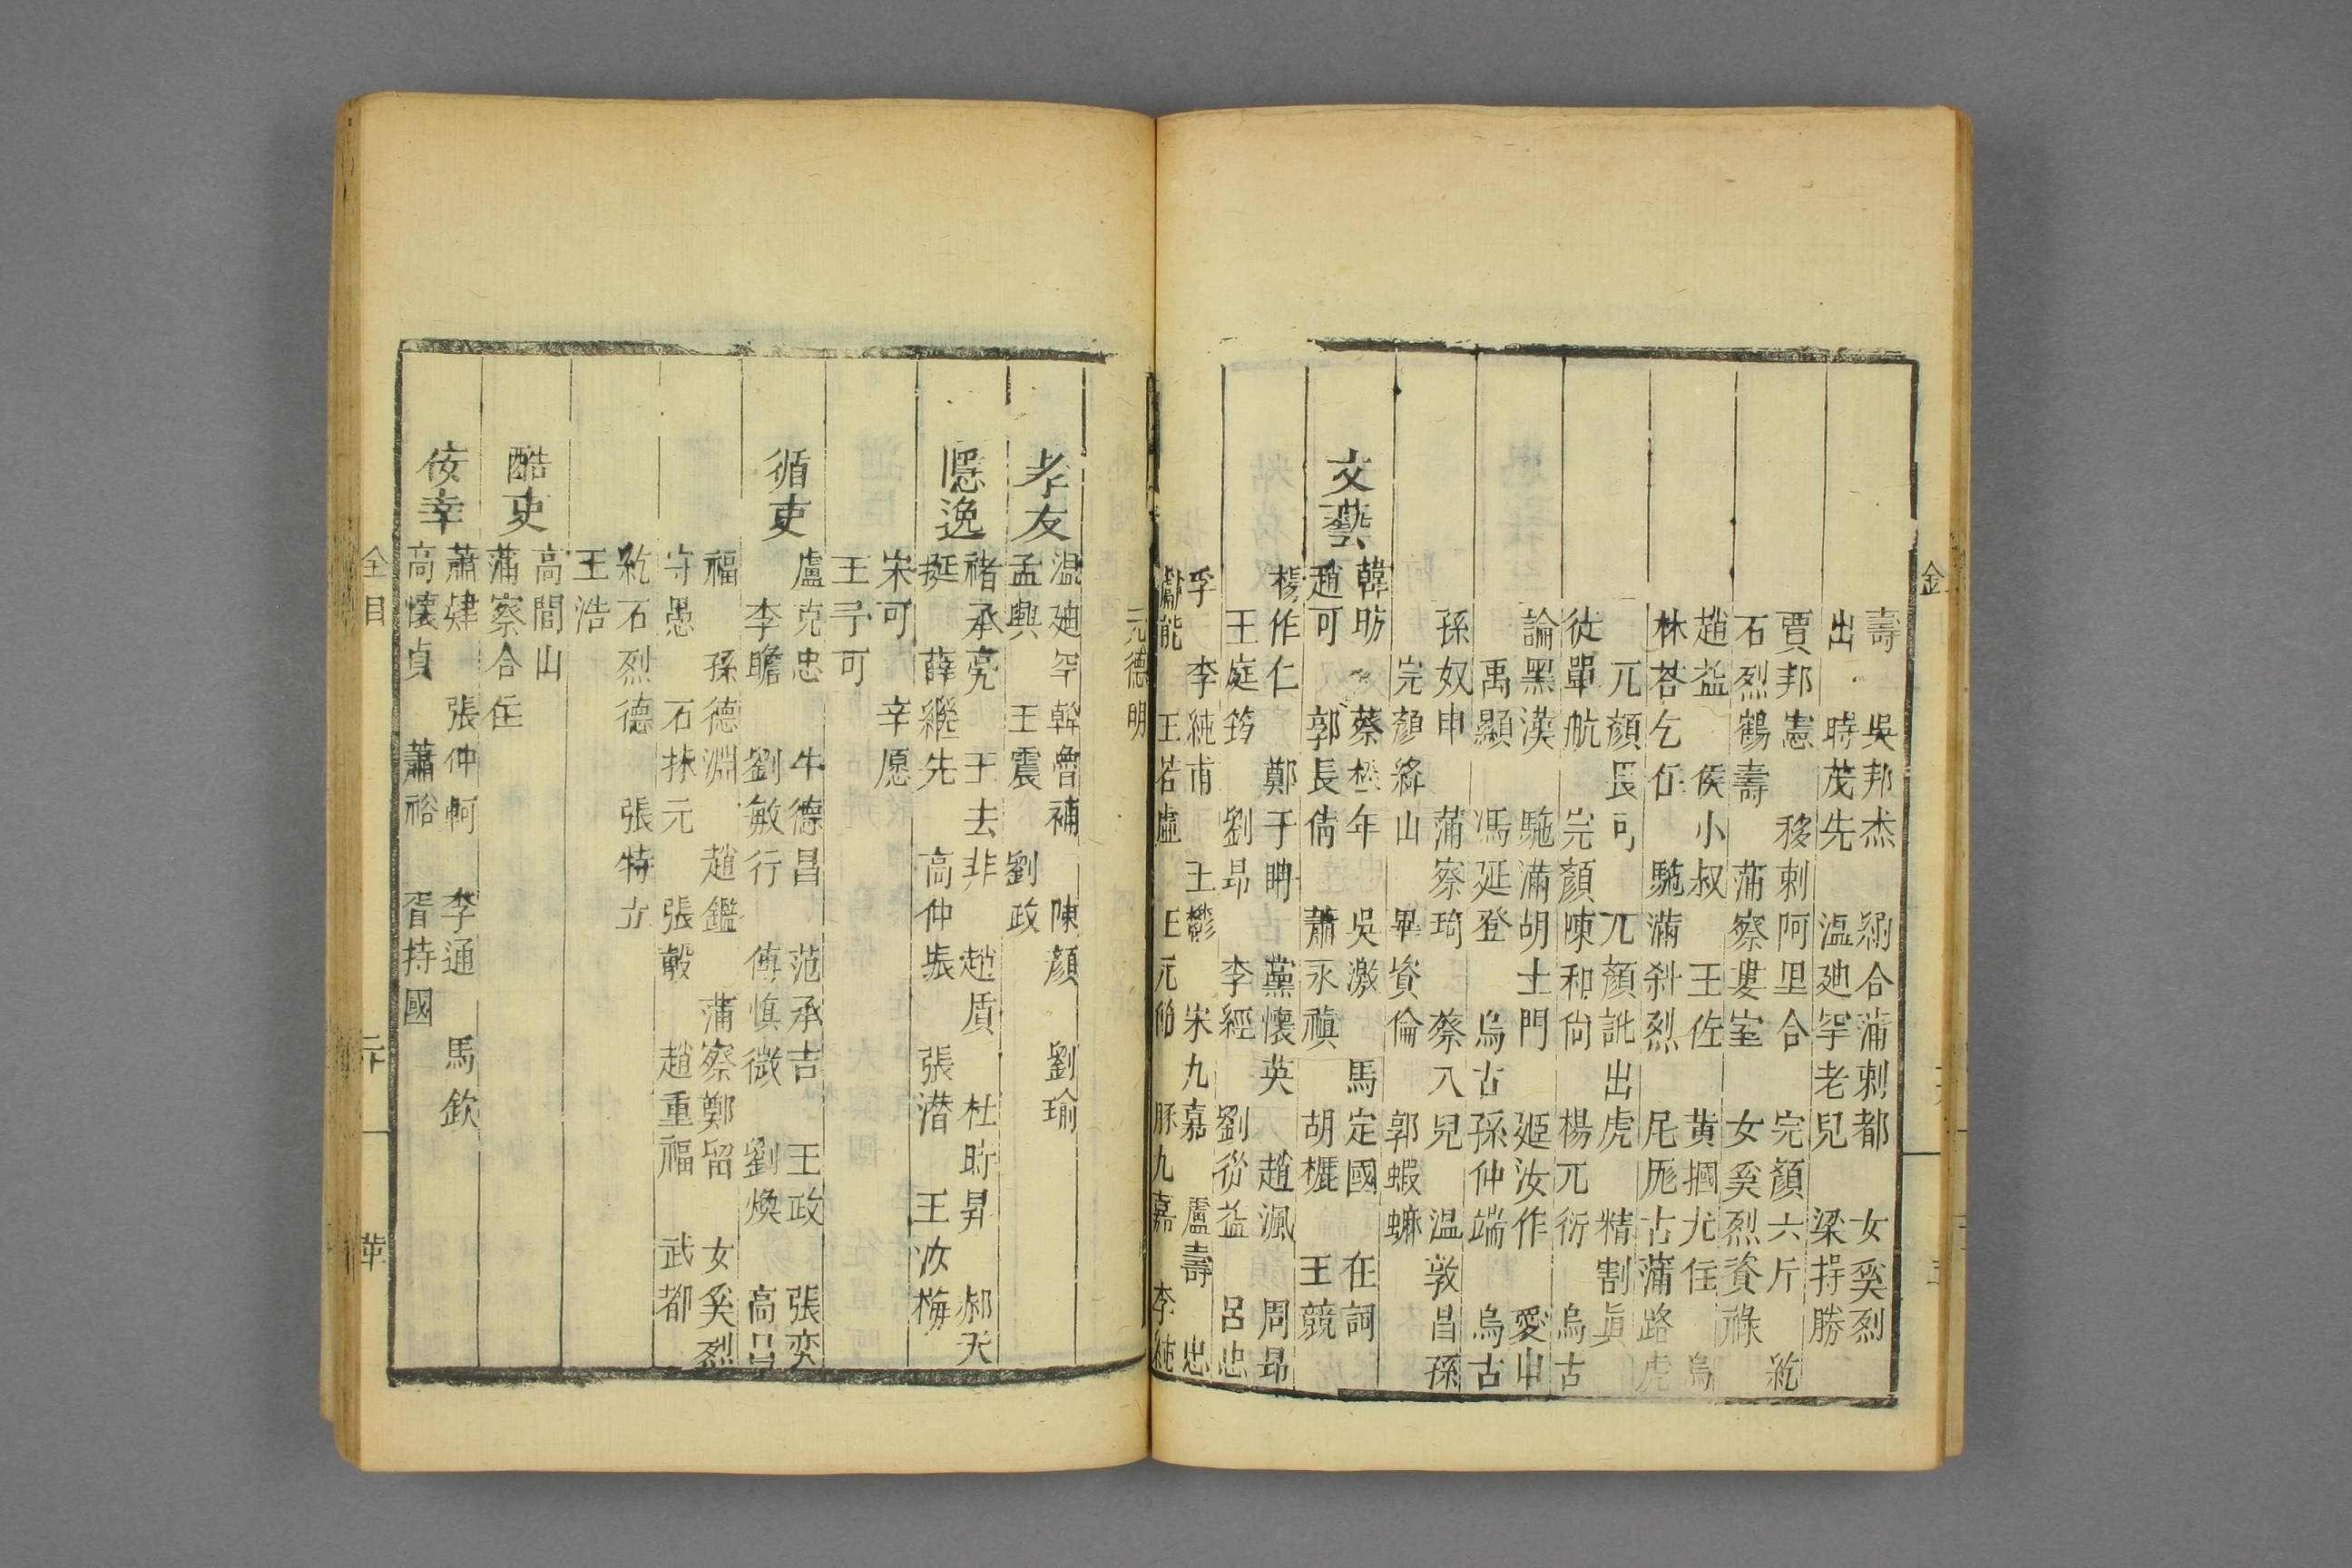 壽　吳邦杰　納合蒲剌都　女奚烈
出　時茂先　溫廸罕老兒　梁持勝
賈邦憲　移剌阿里合　完顏六斤　紇
石烈鶴壽　蒲察婁室　女奚烈資祿
趙益　侯小叔　王佐　黃摑九住　烏
林荅乞住　駞滿斜烈　尼厖古蒲路虎
兀顏畏可　兀顏訛出虎　精割眞
從單航　完顏陳和尙　楊兀衍　烏古
論黑漢　駞滿胡土門　姬汝作　愛申
禹顯　馮延登　烏古孫仲端　烏古
孫奴申　蒲察琦　蔡八兒　温敦昌孫
完顏絳山　畢資倫　郭蝦蟆
文藝
韓昉　蔡松年　吳激　馬定國　在詞
趙可　郭長倩　蕭永祺　胡櫪　王競
楊作仁　鄭子聃　黨懷英　趙渢　周昂
王庭筠　劉昂　李經　劉從益　呂忠
李　李純甫　王欝　宋九嘉　盧壽　忠
獻能　王若虛　王元節　脉九嘉　李純
元德明
孝友
温廸罕斡魯補　陳顏　劉瑜
孟興　王震　劉政
隱逸
褚承亮　王去非　趙質　杜時昇　郝天
挺　薛繼先　高仲振　張潛　王汝梅
宋可　辛愿
王予可
循吏
盧克忠　牛德昌　范承吉　王政　張奕
李瞻　劉敏行　傅慎微　劉煥　高昌
福　孫德淵　趙鑑　蒲察鄭留　女奚烈
守愚　石抹元　張彀　趙重福　武都
紇石烈德　張特立
王浩
酷吏
高閭山
蒲察合住
佞幸
蕭肄　張仲軻　李通　馬欽
高懷貞　蕭裕　胥持國